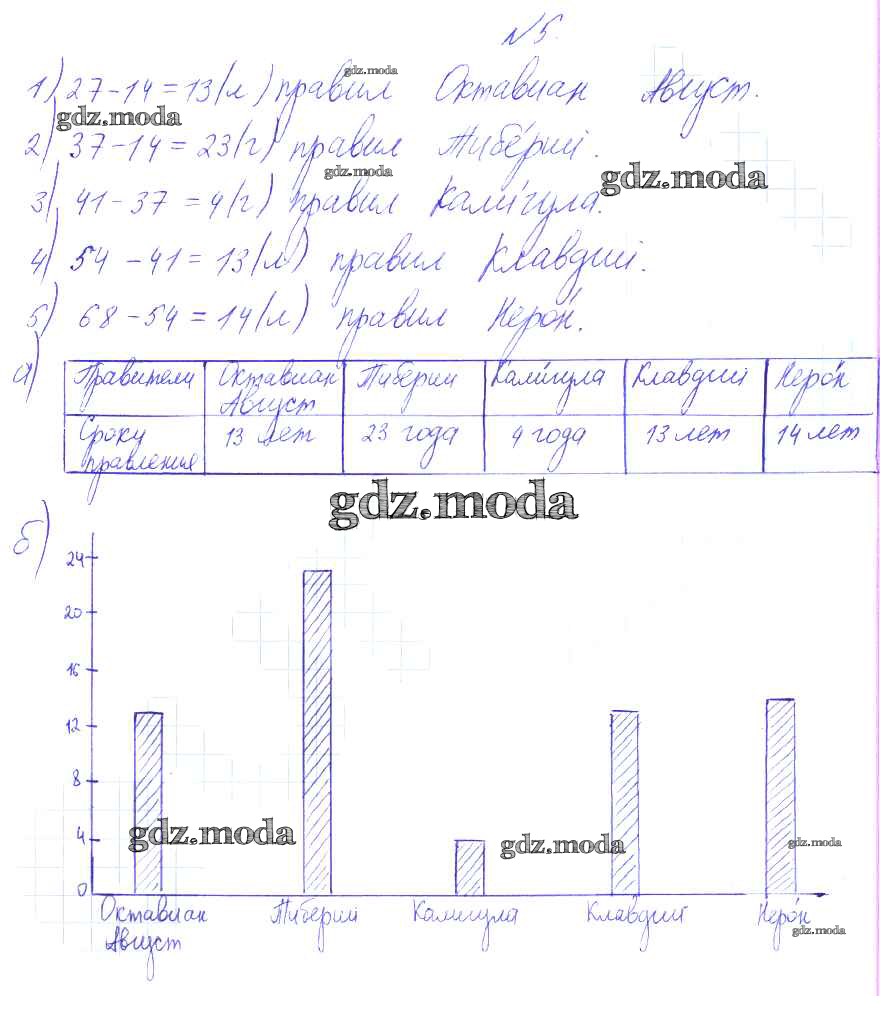 №5.
1) 27-14=13(л) правил Октавиан Август.
gdz.moda
gdz.moda
2) 37-14=23(г) правил Тибе́рий.
gdz.moda
gdz.moda
3) 41-37=4(г) правил Кали́гула.
4) 54-41=13(л) правил Клавдий.
5) 68-54=14(л) правил Неро́н.
а)
Правители Октавиан Август Тиберий Кали́гула Клавдий Неро́н
Сроку правления 13 лет 23 года 4 года 13 лет 14 лет
gdz.moda
б)
24
20
16
12
8
4
0
gdz.moda
gdz.moda
gdz.moda
Октавиан Август Тиберий Калигула Клавдий Неро́н
gdz.moda